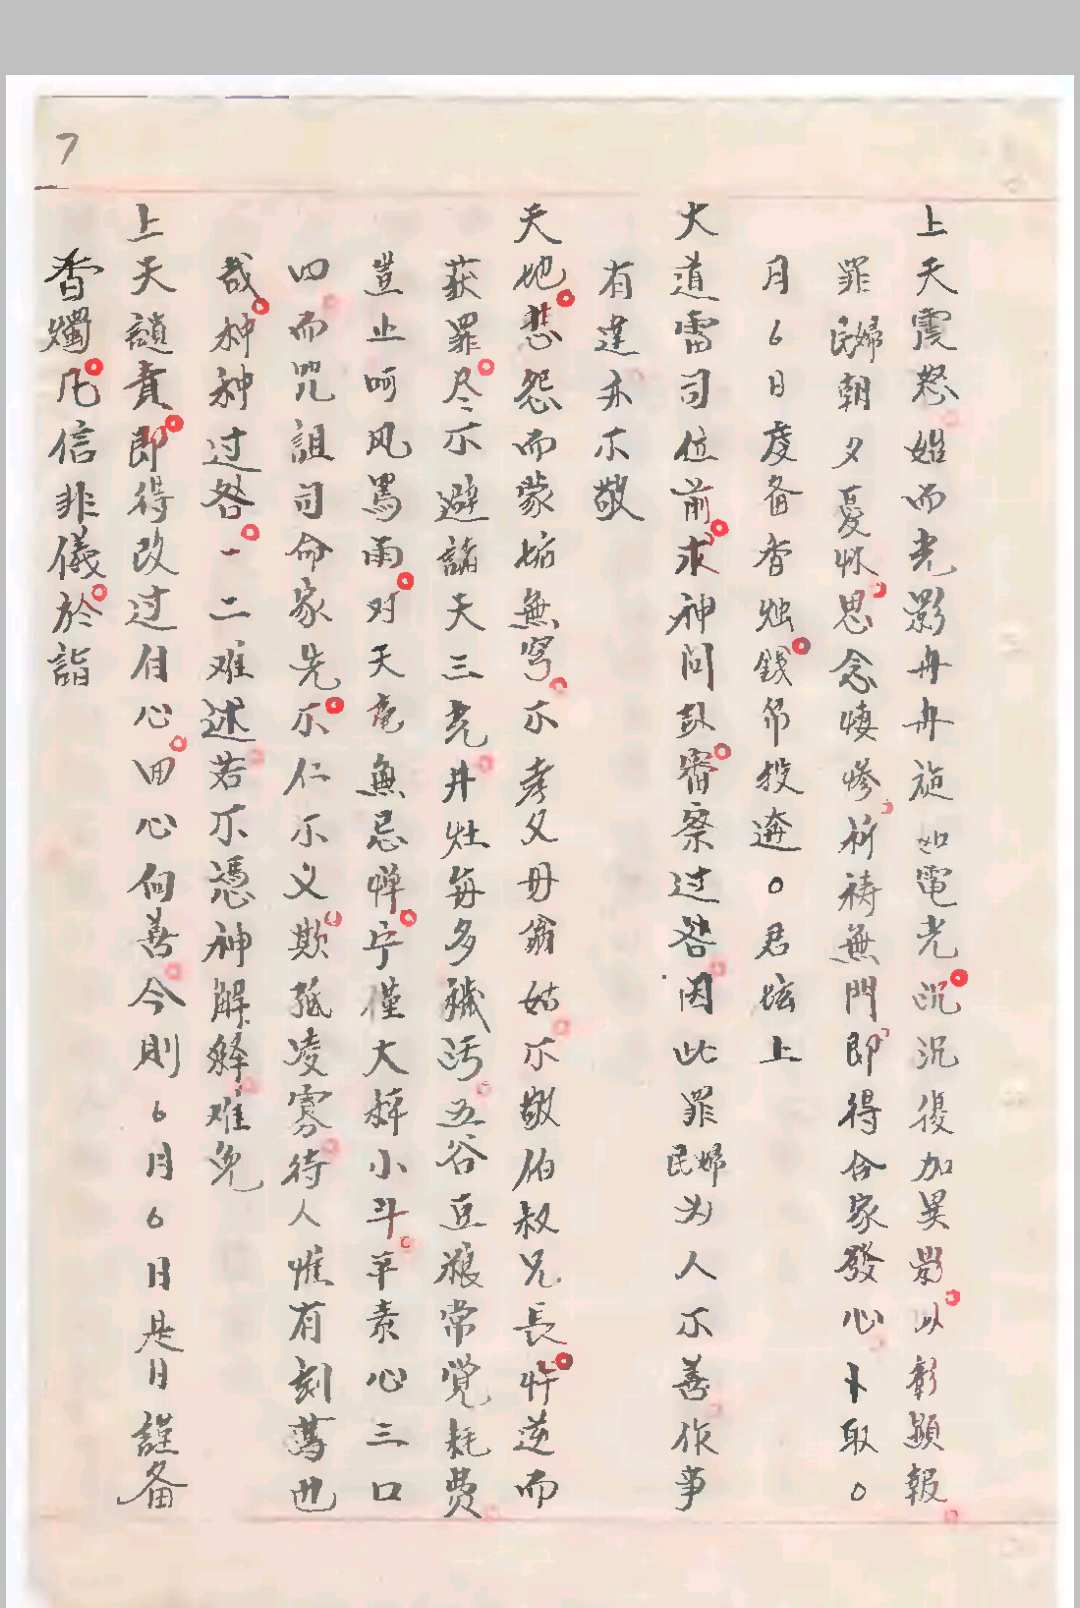 7
上天震怒始而光影舟舟施如電光沉沉復加異影以彰顕報
罪民婦朝夕憂怀思念悽惨祈祷無門即得合家發心卜取○
月6日虔备香烛錢帛投迯○君坛上
大道雷司位前求神问卦審察过咎因此罪民婦为人不善作事
有違亦不敬
天地悲怨而蒙垢無穹不孝父毋翁姑不敬伯叔兄長忤逆而
获罪尽不避諸天三光井灶每多穢污五谷豆粮常覚耗费
豈止呵风罵雨对天毫無忌惮宁僅大秤小斗平素心三口
四而咒詛司命家先不仁不义欺孤凌寡待人惟有刻薄也
哉种种过咎一二难述若不憑神解释难免
上天譴責即得改过自心田心向善今則6月6日是日謹备
香燭凡信非儀於詣